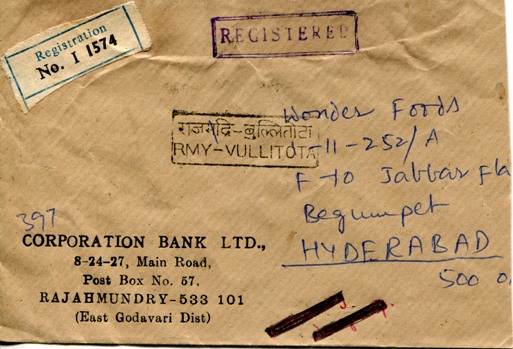 Registration
No. I 1574
REGISTERED
राजमंद्रि-वुल्लितोटा
RMY-VULLITOTA
Wonder Foods
-11-252/A
F-10 Jabbar Fla
Begumpet
HYDERABAD
500 0
397
CORPORATION BANK LTD.,
8-24-27, Main Road,
Post Box No. 57,
RAJAHMUNDRY-533 101
(East Godavari Dist)